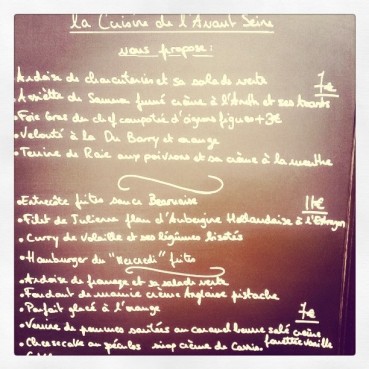 La Cuisine de l'Avant Seine
vous propose :
Ardoise de charcuteries et sa salade verte
7€
• Assiette de Saumon fumé crème à l'Aneth et ses toasts
• Foie Gras du chef compotée d'oignons figues +3€
• Velouté à la Du Barry et orange
• Terrine de Raie aux poivrons et sa crème à la menthe
• Entrecôte frites sauce Bearnaise
11€
• Filet de Julienne flan d'Aubergine Hollandaise à l'Estragon
• Curry de Volaille et ses légumes
• Hamburger du "Mercredi" frites
• Ardoise de fromage et sa salade verte
• Fondant de mamie crème Anglaise pistache
• Parfait glacé à l'orange
7€
• Verrine de pommes sautées au caramel beurre salé crème
fouettée vanille
• Cheesecake au spéculos sirop crème de Cassis.